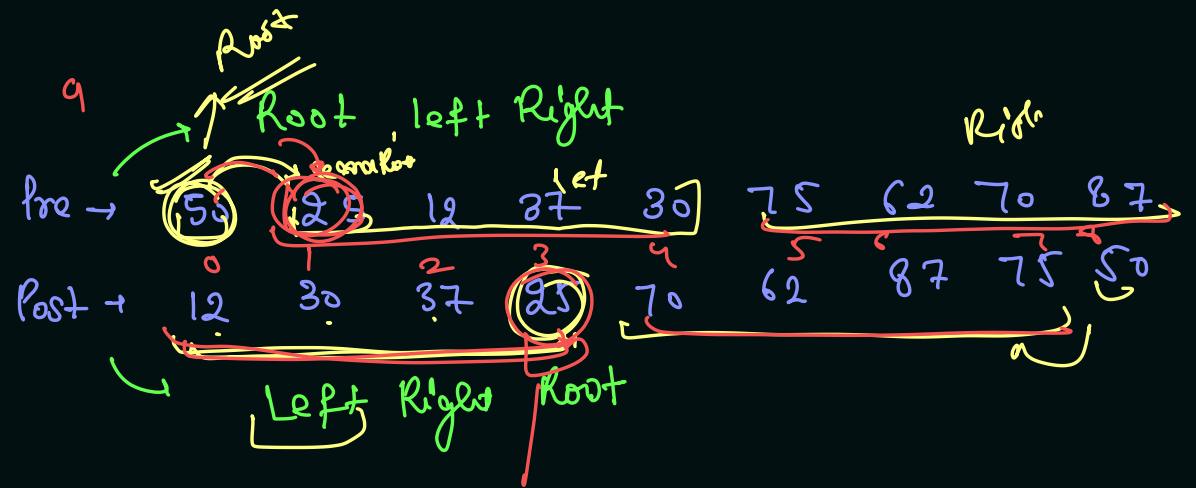 Root
9 Root left Right Righ
Pre → 50 25 12 37 30 75 62 70 87
0 1 2 3 4 5 6 7 8
Post → 12 30 37 25 70 62 87 75 50
Left Right Root